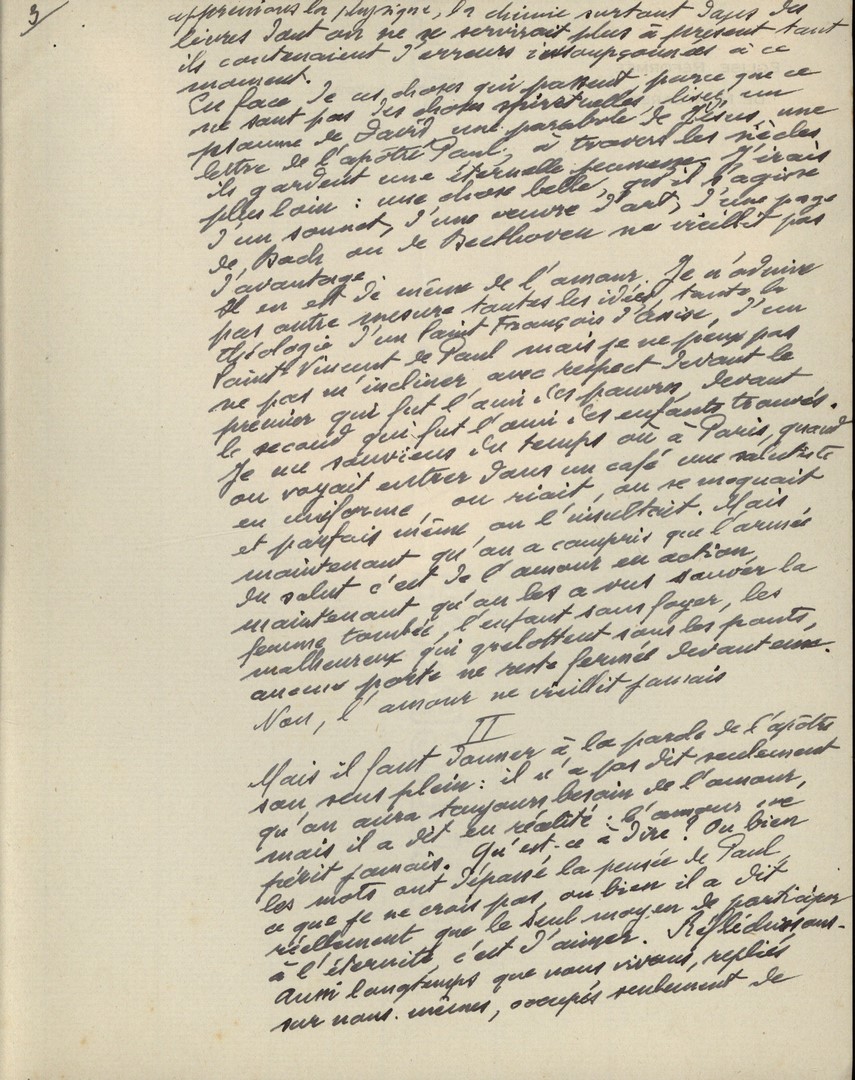 3/
apprenions la physique, la chimie surtout dans des
livres dont on ne se servirait plus à présent tant
ils contenaient d'erreurs insoupçonnées à ce
moment.
En face de ces choses qui passent, parce que ce
ne sont pas des choses spirituelles, lisez un
psaume de David, une parabole de Jésus, une
lettre de l'apôtre Paul, à travers les siècles
ils gardent une éternelle jeunesse. J'irais
plus loin : une chose belle, qu'il s'agisse
d'un sonnet, d'une œuvre d'art, d'une page
de Bach ou de Beethoven ne vieillit pas
d'avantage.
Il en est de même de l'amour. Je n'admire
pas outre mesure toutes les idées, toute la
théologie d'un Saint François d'Assise, d'un
Saint Vincent de Paul mais je ne peux pas
ne pas m'incliner avec respect devant le
premier qui fut l'ami des pauvres, devant
le second qui fut l'ami des enfants trouvés.
Je me souviens du temps où à Paris, quand
on voyait entrer dans un café une salutiste
en uniforme, on riait, on se moquait
et parfois même on l'insultait. Mais
maintenant qu'on a compris que l'armée
du salut c'est de l'amour en action,
maintenant qu'on les a vus sauver la
femme tombée, l'enfant sans foyer, les
malheureux qui grelottent sous les ponts,
aucune porte ne reste fermée devant eux.
Non, l'amour ne vieillit jamais
II
Mais il faut donner à la parole de l'apôtre
son sens plein : il n'a pas dit seulement
qu'on aura toujours besoin de l'amour,
mais il a dit en réalité : l'amour ne
périt jamais. Qu'est-ce à dire ? Ou bien
les mots ont dépassé la pensée de Paul,
ce que je ne crois pas, ou bien il a dit
réellement que le seul moyen de participer
à l'éternité c'est d'aimer. Réfléchissons-
Aussi longtemps que nous vivons, repliés
sur nous-mêmes, occupés seulement de